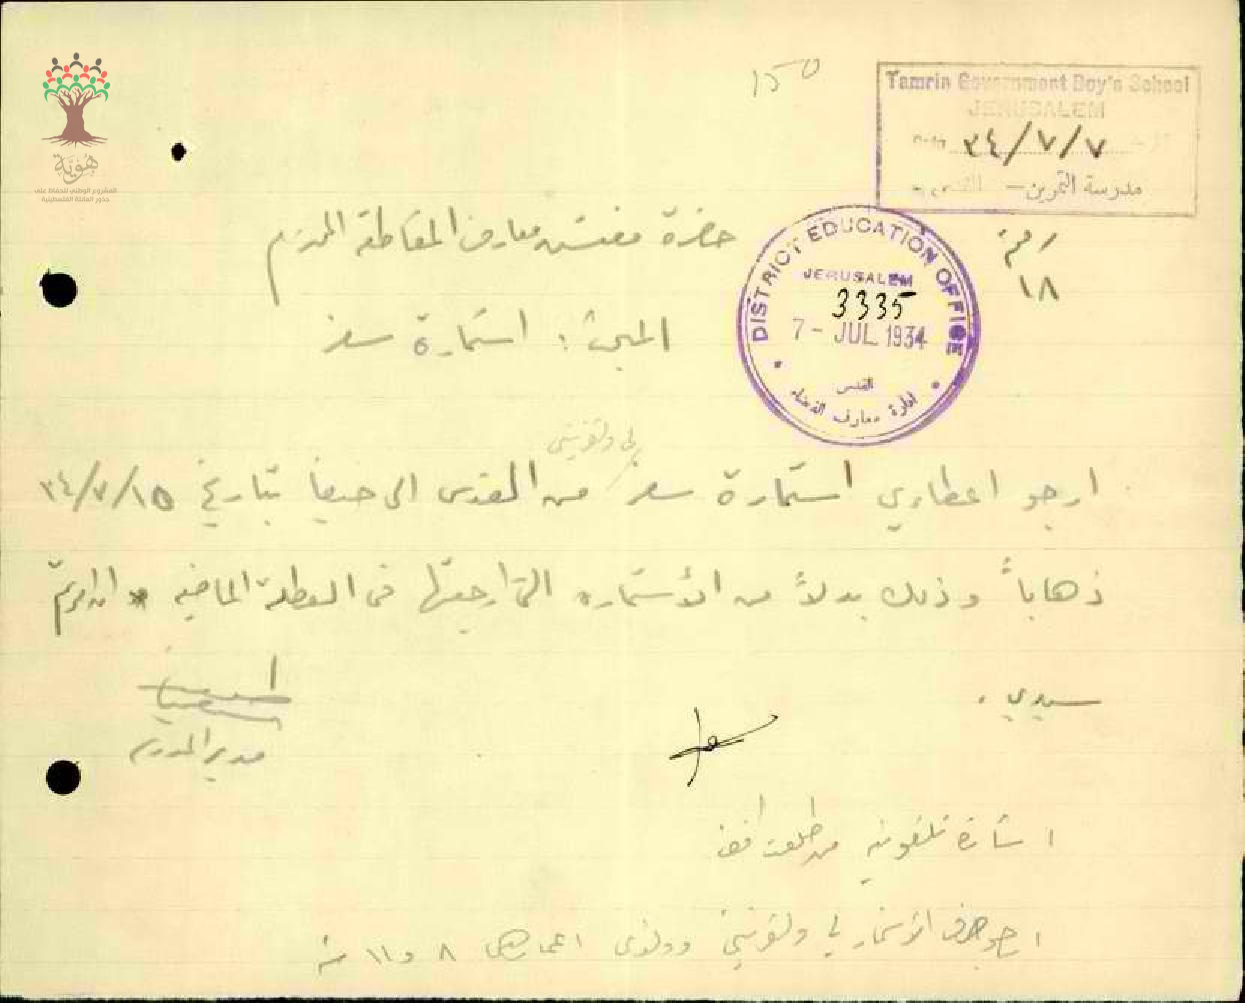 هوية
المشروع الوطني للحفاظ على
جذور العائلة الفلسطينية
150
Tamrin Government Boy's School
JERUSALEM
Date ٣٤/٧/٧
مدرسة التمرين - القدس -
١٨
DISTRICT EDUCATION OFFICE
JERUSALEM
3335
7 - JUL 1934
القدس
ادارة معارف القضاء
حضرة مفتش معارف المقاطعة المحترم
المبحث : استمارة سفر
لي ولقرينتي
ارجو اعطائي استمارة سفر من القدس الى حيفا بتاريخ ٣٤/٧/١٥
ذهاباً وذلك بدلاً من الأستمارة التي ارجعتها في العطلة الماضية
سيدي .
مدير المدرسة
اشارة تلفونية من طلعت افندي
ارجو صرف الأستمارة لي ولقرينتي وولدى اعمارهما ٨ و ١١ سنة